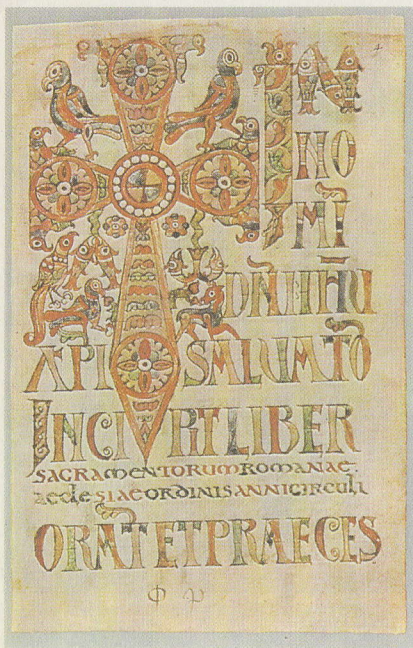 IN
NO
MĪ
DN̄I IHŪ
XPI SALUATO
INCIPIT LIBER
SACRAMENTORUM ROMANAE
AECLESIAE ORDINIS ANNI CIRCULI
ORAT ET PRAECES